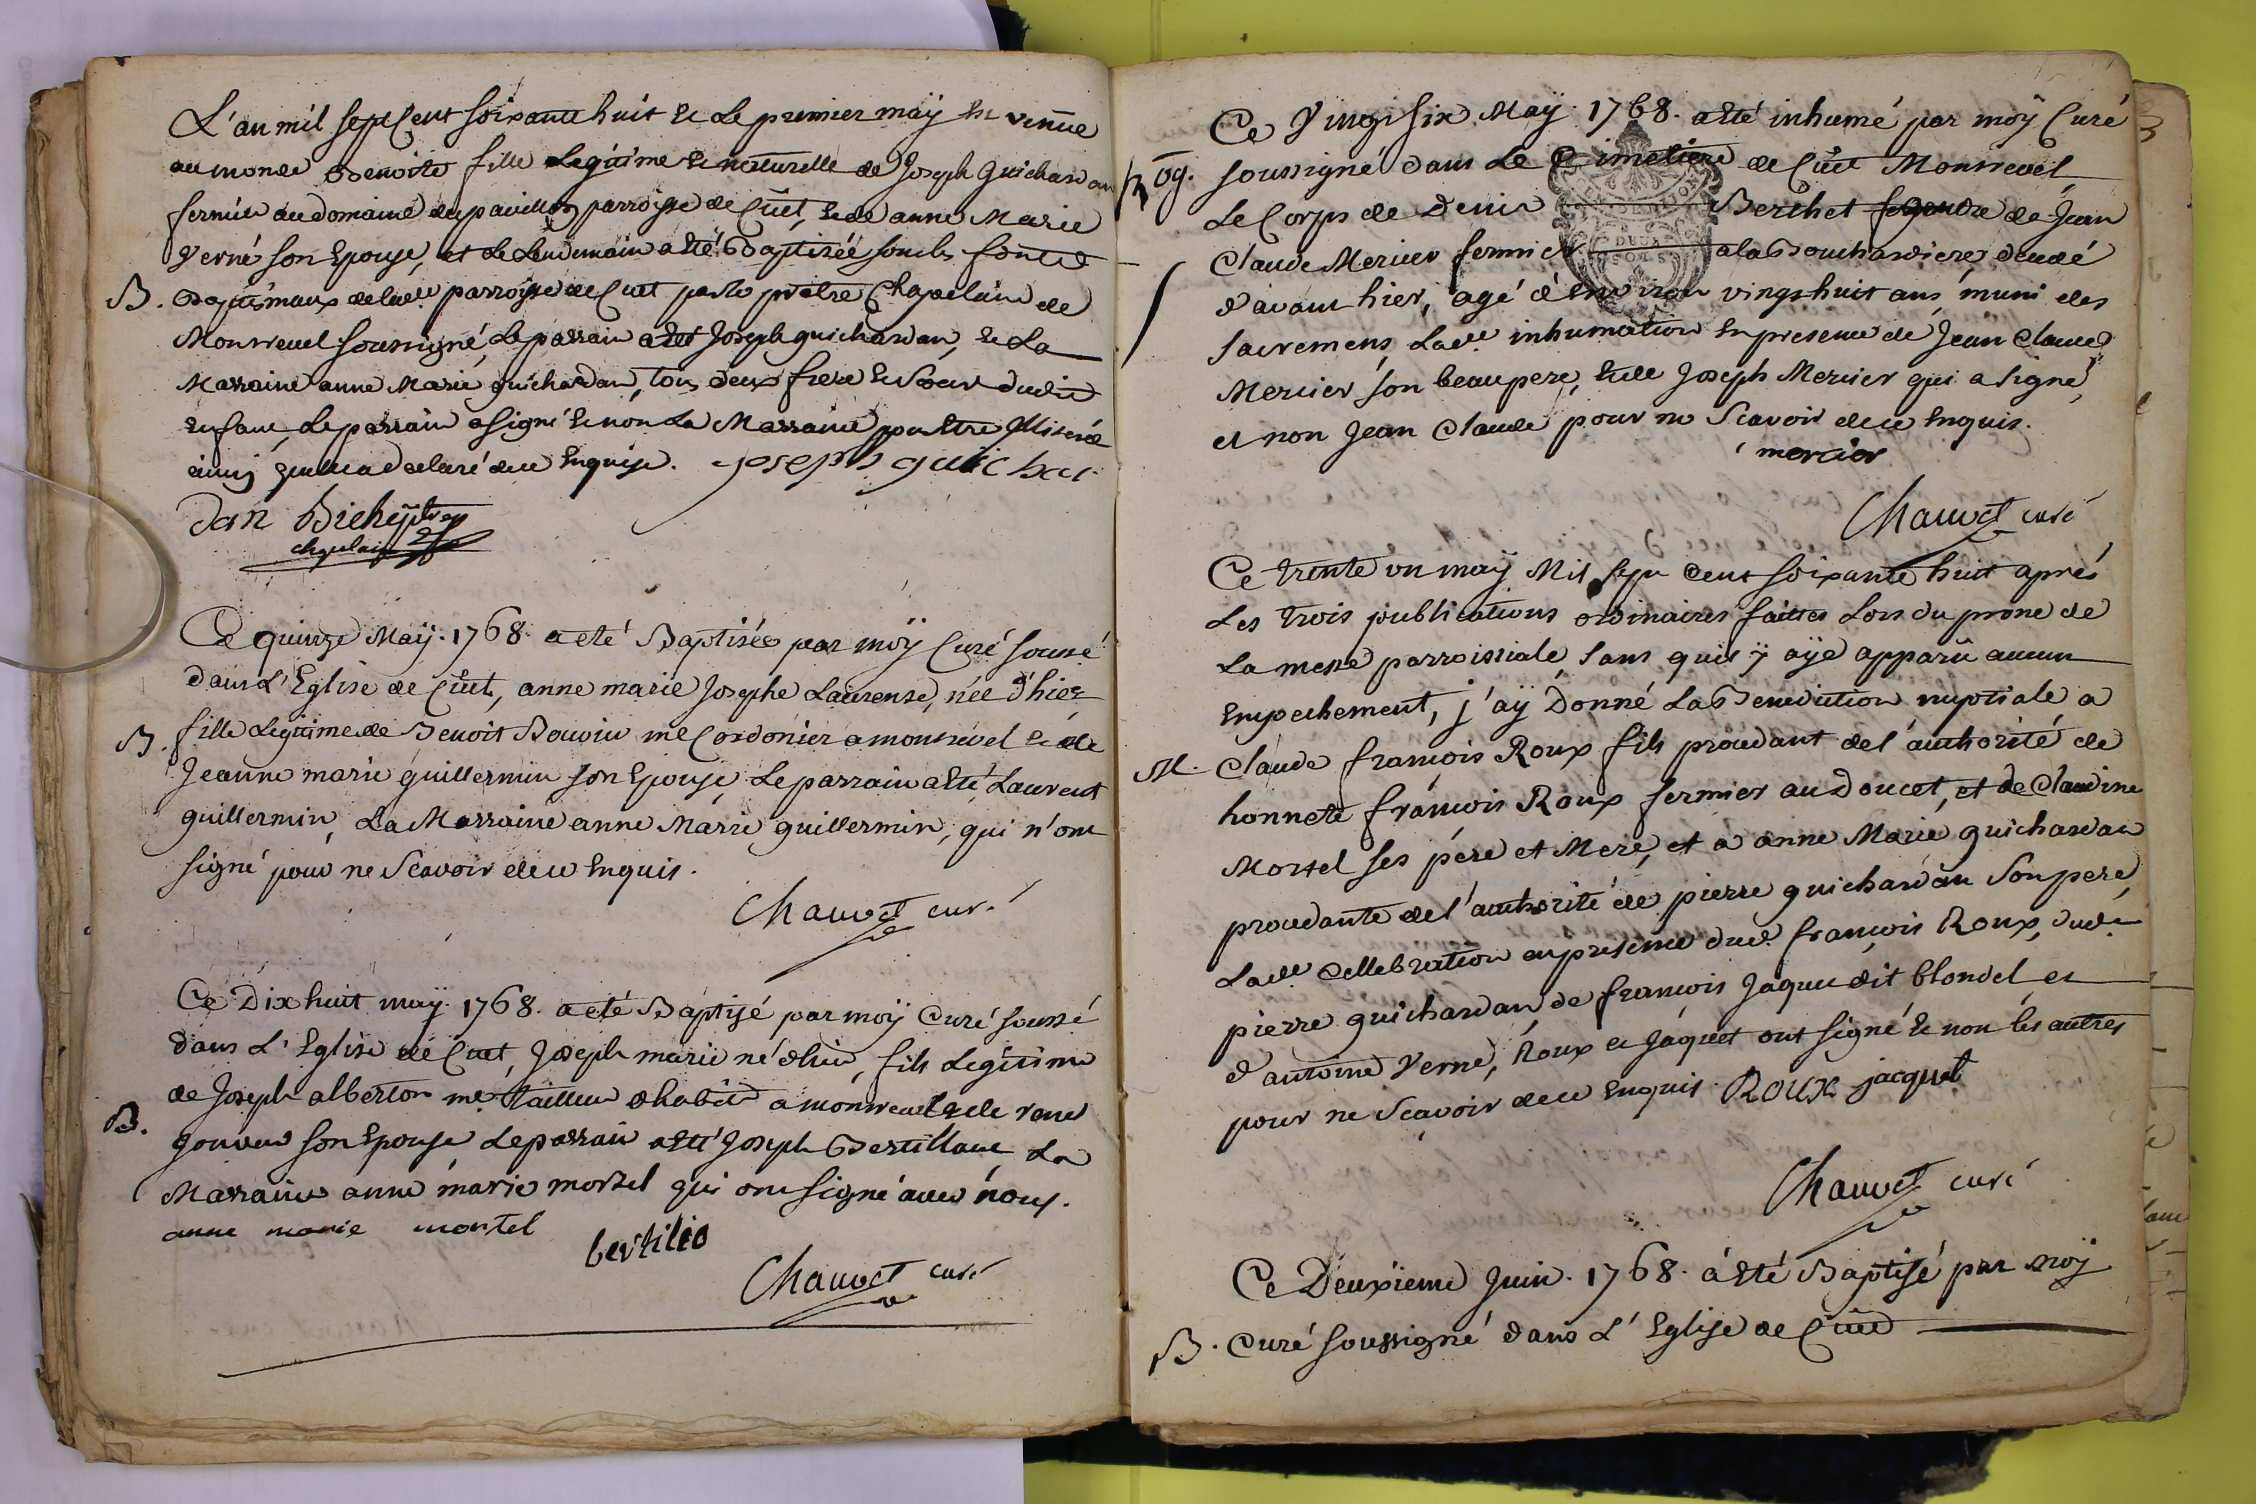 L'an mil sept Cent soixante huit & Le premier maÿ est venüe
au monde Benoite fille Legitime & naturelle de Joseph Guichardan
fermier au domaine du pavillon parroisse de Cüet, & de anne Marie
Verne son Epouse, et Le Lendemain a eté Baptisée sur les fonts
B. Baptismaux de lade parroisse de Cuet par le prêtre Chapelain de
Montrevel soussigné, Le parrain a eté Joseph guichardan, & La
Marraine anne Marie guichardan, tous deux frere & soeur dudit
enfant, Le parrain a signé & non La Marraine pour etre illiteré
ainsi quelle a declaré de ce Enquise. joseph guichar
dan Bichet ptre
chapelain
Ce quinze Maÿ. 1768. a eté Baptisée par moÿ Curé soussé
dans L'Eglise de Cüet, anne marie Josephe Laurense, née d'hier
B. fille Legitime de Benoit Bouvier me Cordonier a montrevel & de
Jeanne marie guillermin son Epouse Le parrain a eté Laurent
guillermin, La Marraine anne Marie guillermin, qui n'ont
signé pour ne Scavoir de ce Enquis.
Chauvet curé
Ce Dix huit maÿ. 1768. a eté Baptisé par moÿ Curé soussé
dans L'Eglise de Cuet, Joseph marie né d'hier, fils Legitime
de Joseph alberton me Tailleur d'habits a montrevel & de
B. son Epouse Le parrain a eté Joseph Bertillant La
Marraine anne marie mortel qui ont signé avec nous.
anne marie mortel bertilio
Chauvet curé
Ce Vingt six Maÿ. 1768. a eté inhumé par moÿ Curé
soussigné dans Le Cimetiere de Cüet Montrevel
Le Corps de Denis Berthet gendre de Jean
Claude Mercier fermier a la Bouchardiere decedé
d'avant hier, agé d'environ vingt huit ans, muni des
Sacremens, Lade inhumation en presence de Jean Claude
Mercier son beaupere, & de Joseph Mercier qui a signé,
et non Jean Claude pour ne Scavoir de ce Enquis.
mercier
Chauvet curé
Ce trente un maÿ Mil sept Cent soixante huit aprés
Les trois publications ordinaires faittes Lors du prone de
La messe parroissiale, sans quil ÿ aÿe apparû aucun
Empechement, j'aÿ Donné La Benediction nuptiale a
M. Claude françois Roux fils procedant de l'authorité de
honnete françois Roux fermier au Doucet, et de Claudine
Mortel ses pére et Mere, et a anne Marie guichardan
procedante de l'authorité de pierre guichardan son pere,
Lade Cellebration en presence dud. françois Roux, dud.
pierre guichardan de françois Jaquet dit blondel, et
d'antoine Verne, Roux et Jáquet ont signé & non les autres
pour ne Scavoir de ce enquis. ROUX jacquet
Chauvet curé
Ce Deuxieme Juin. 1768. a eté Baptisé par moÿ
B. Curé soussigné dans L'Eglise de Cüet